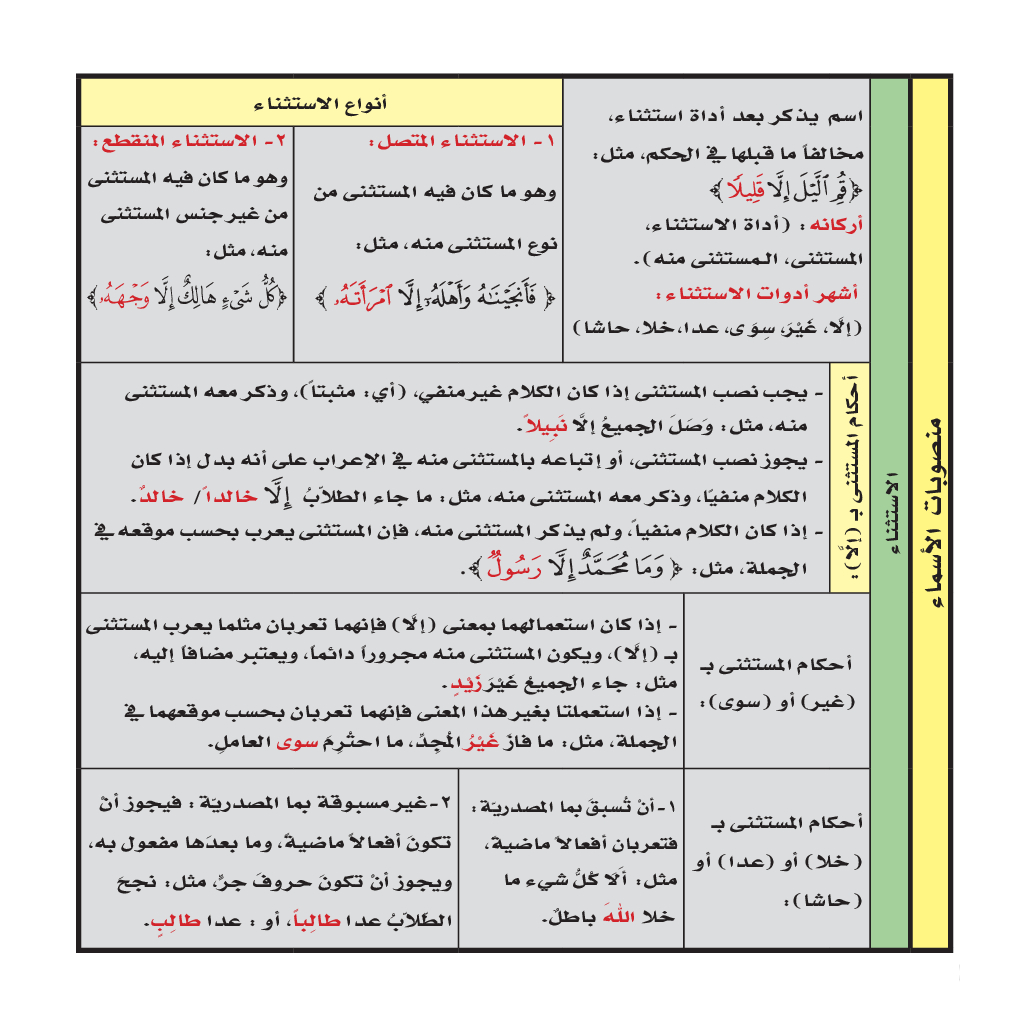 منصوبات الأسماء
الاستثناء
اسم يذكر بعد أداة استثناء،
مخالفاً ما قبلها في الحكم، مثل:
﴿قُمِ ٱلَّيۡلَ إِلَّا قَلِيلٗا﴾
أركانه: (أداة الاستثناء،
المستثنى، المستثنى منه).
أشهر أدوات الاستثناء:
(إلَّا، غَيْرَ، سِوَى، عدا، خلا، حاشا)
أنواع الاستثناء
١- الاستثناء المتصل:
وهو ما كان فيه المستثنى من
نوع المستثنى منه، مثل:
﴿ فَأَنجَيۡنَٰهُ وَأَهۡلَهُۥٓ إِلَّا ٱمۡرَأَتَهُۥ ﴾
٢- الاستثناء المنقطع:
وهو ما كان فيه المستثنى
من غير جنس المستثنى
منه، مثل:
﴿كُلُّ شَيۡءٍ هَالِكٌ إِلَّا وَجۡهَهُۥ﴾
أحكام المستثنى بـ (إلَّا):
- يجب نصب المستثنى إذا كان الكلام غير منفي، (أي: مثبتاً)، وذكر معه المستثنى
منه، مثل: وَصَلَ الجميعُ إلَّا نَبِيلاً.
- يجوز نصب المستثنى، أو إتباعه بالمستثنى منه في الإعراب على أنه بدل إذا كان
الكلام منفيًا، وذكر معه المستثنى منه، مثل: ما جاء الطلاّبُ إِلَّا خالداً/ خالدٌ.
- إذا كان الكلام منفياً، ولم يذكر المستثنى منه، فإن المستثنى يعرب بحسب موقعه في
الجملة، مثل: ﴿ وَمَا مُحَمَّدٌ إِلَّا رَسُولٌ ﴾.
أحكام المستثنى بـ
(غير) أو (سوى):
- إذا كان استعمالهما بمعنى (إلَّا) فإنهما تعربان مثلما يعرب المستثنى
بـ (إلَّا)، ويكون المستثنى منه مجروراً دائماً، ويعتبر مضافاً إليه،
مثل: جاء الجميعُ غَيْرَ زَيْدٍ.
- إذا استعملتا بغير هذا المعنى فإنهما تعربان بحسب موقعهما في
الجملة، مثل: ما فازَ غَيْرُ المُجِدِّ، ما احتْرِمَ سوى العاملِ.
أحكام المستثنى بـ
(خلا) أو (عدا) أو
(حاشا):
١-أنْ تُسبقَ بما المصدريّة:
فتعربان أفعالاً ماضيةً،
مثل: ألَا كُلُّ شيء ما
خلا اللهَ باطلٌ.
٢-غير مسبوقة بما المصدريّة: فيجوز أنْ
تكونَ أفعالاً ماضيةً، وما بعدَها مفعول به،
ويجوز أنْ تكونَ حروفَ جرٍّ، مثل: نجحَ
الطّلاّبُ عدا طالِباً، أو: عدا طالِبٍ.